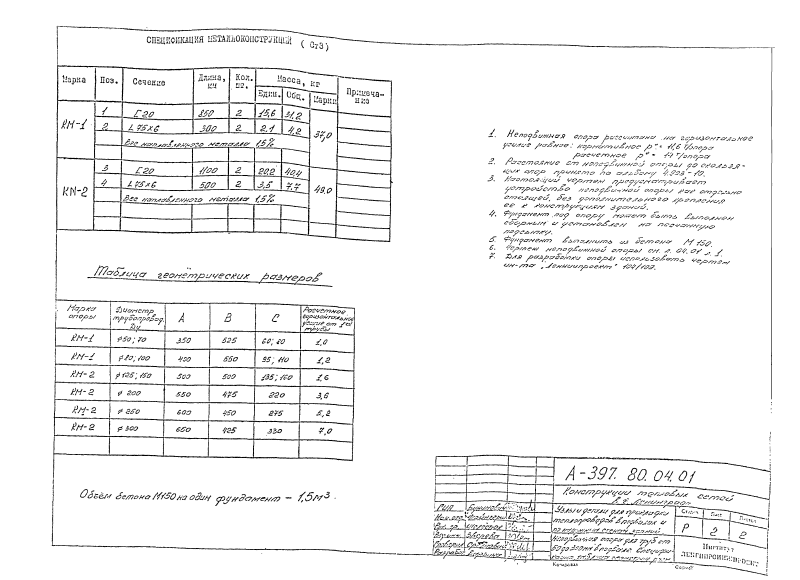 СПЕЦИФИКАЦИЯ МЕТАЛЛОКОНСТРУКЦИЙ ( Ст3)
Марка Поз. Сечение Длина, мм Кол. шт. Масса, кг Примеча-ние
Един. Общ. Марки
КМ-1 1 [20 850 2 15,6 31,2 37,0
2 L75x6 300 2 2,1 4,2
Вес наплавленного металла 1,5%
КМ-2 3 [20 1100 2 20,2 40,4 49,0
4 L75x6 500 2 3,5 7,7
Вес наплавленного металла 1,5%
Таблица геометрических размеров
Марка опоры Диаметр трубопровод. Ду А В С Расчетное горизонтальное усилие от 1ой трубы
КМ-1 φ50; 70 350 525 60; 80 1,0
КМ-1 φ80; 100 400 550 95; 110 1,2
КМ-2 φ125; 150 500 500 135; 160 1,6
КМ-2 φ 200 550 475 220 3,6
КМ-2 φ 250 600 450 275 5,2
КМ-2 φ 300 650 425 330 7,0
Объем бетона М150 на один фундамент – 1,5м³.
1. Неподвижная опора рассчитана на горизонтальное
усилие равное: нормативное рн = 11,6 т/опора
расчетное рн = 14 т/опора
2. Расстояние от неподвижной опоры до скользя-
щих опор принято по альбому 4.903-10.
3. Настоящий чертеж предусматривает
устройство неподвижной опоры как отдельно
стоящей, без дополнительного крепления
ее к конструкциям зданий.
4. Фундамент под опору может быть выполнен
сборным и установлен на песчаную
подсыпку.
5. Фундамент выполнить из бетона М 150.
6. Чертеж неподвижной опоры см. л. 04.01 л. 1.
7. Для разработки опоры использовать чертеж
ин-та „Ленниипроект"
А-397. 80. 04. 01
Конструкции тепловых сетей
в г. Ленинграде
Узлы и детали для прокладки
теплопроводов в подвалах и
Стад. Лист Листов
Р 2 2
Неподвижная опора для труб от
Институт
ЛЕНГИПРОИНЖПРОЕКТ
Копировал